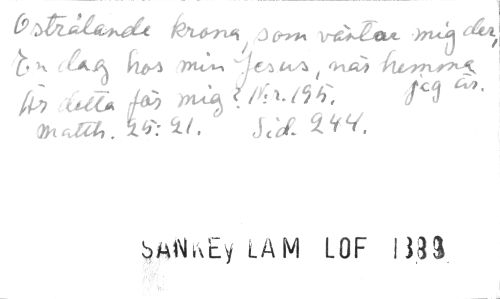 O strålande krona, som väntar mig der,
En dag hos min Jesus, när hemma
jag är.
Är detta för mig? Nr. 195.
Matth. 25:21. Sid. 244.
SANKEY LAM LOF 1889